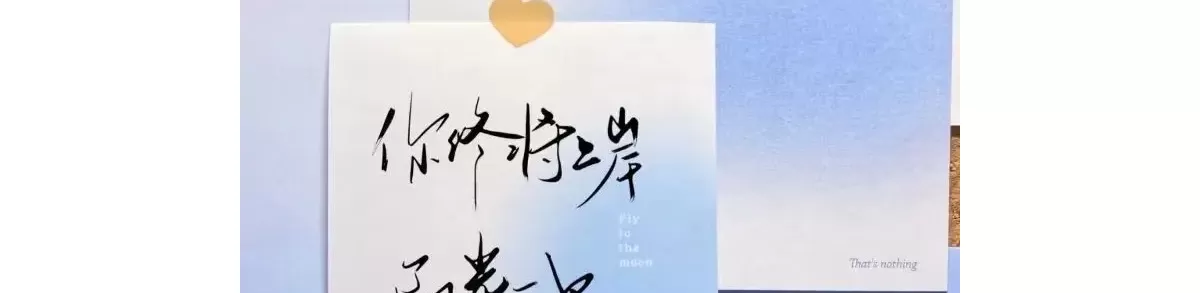 你终将上岸
Fly
to
the
moon
That's nothing